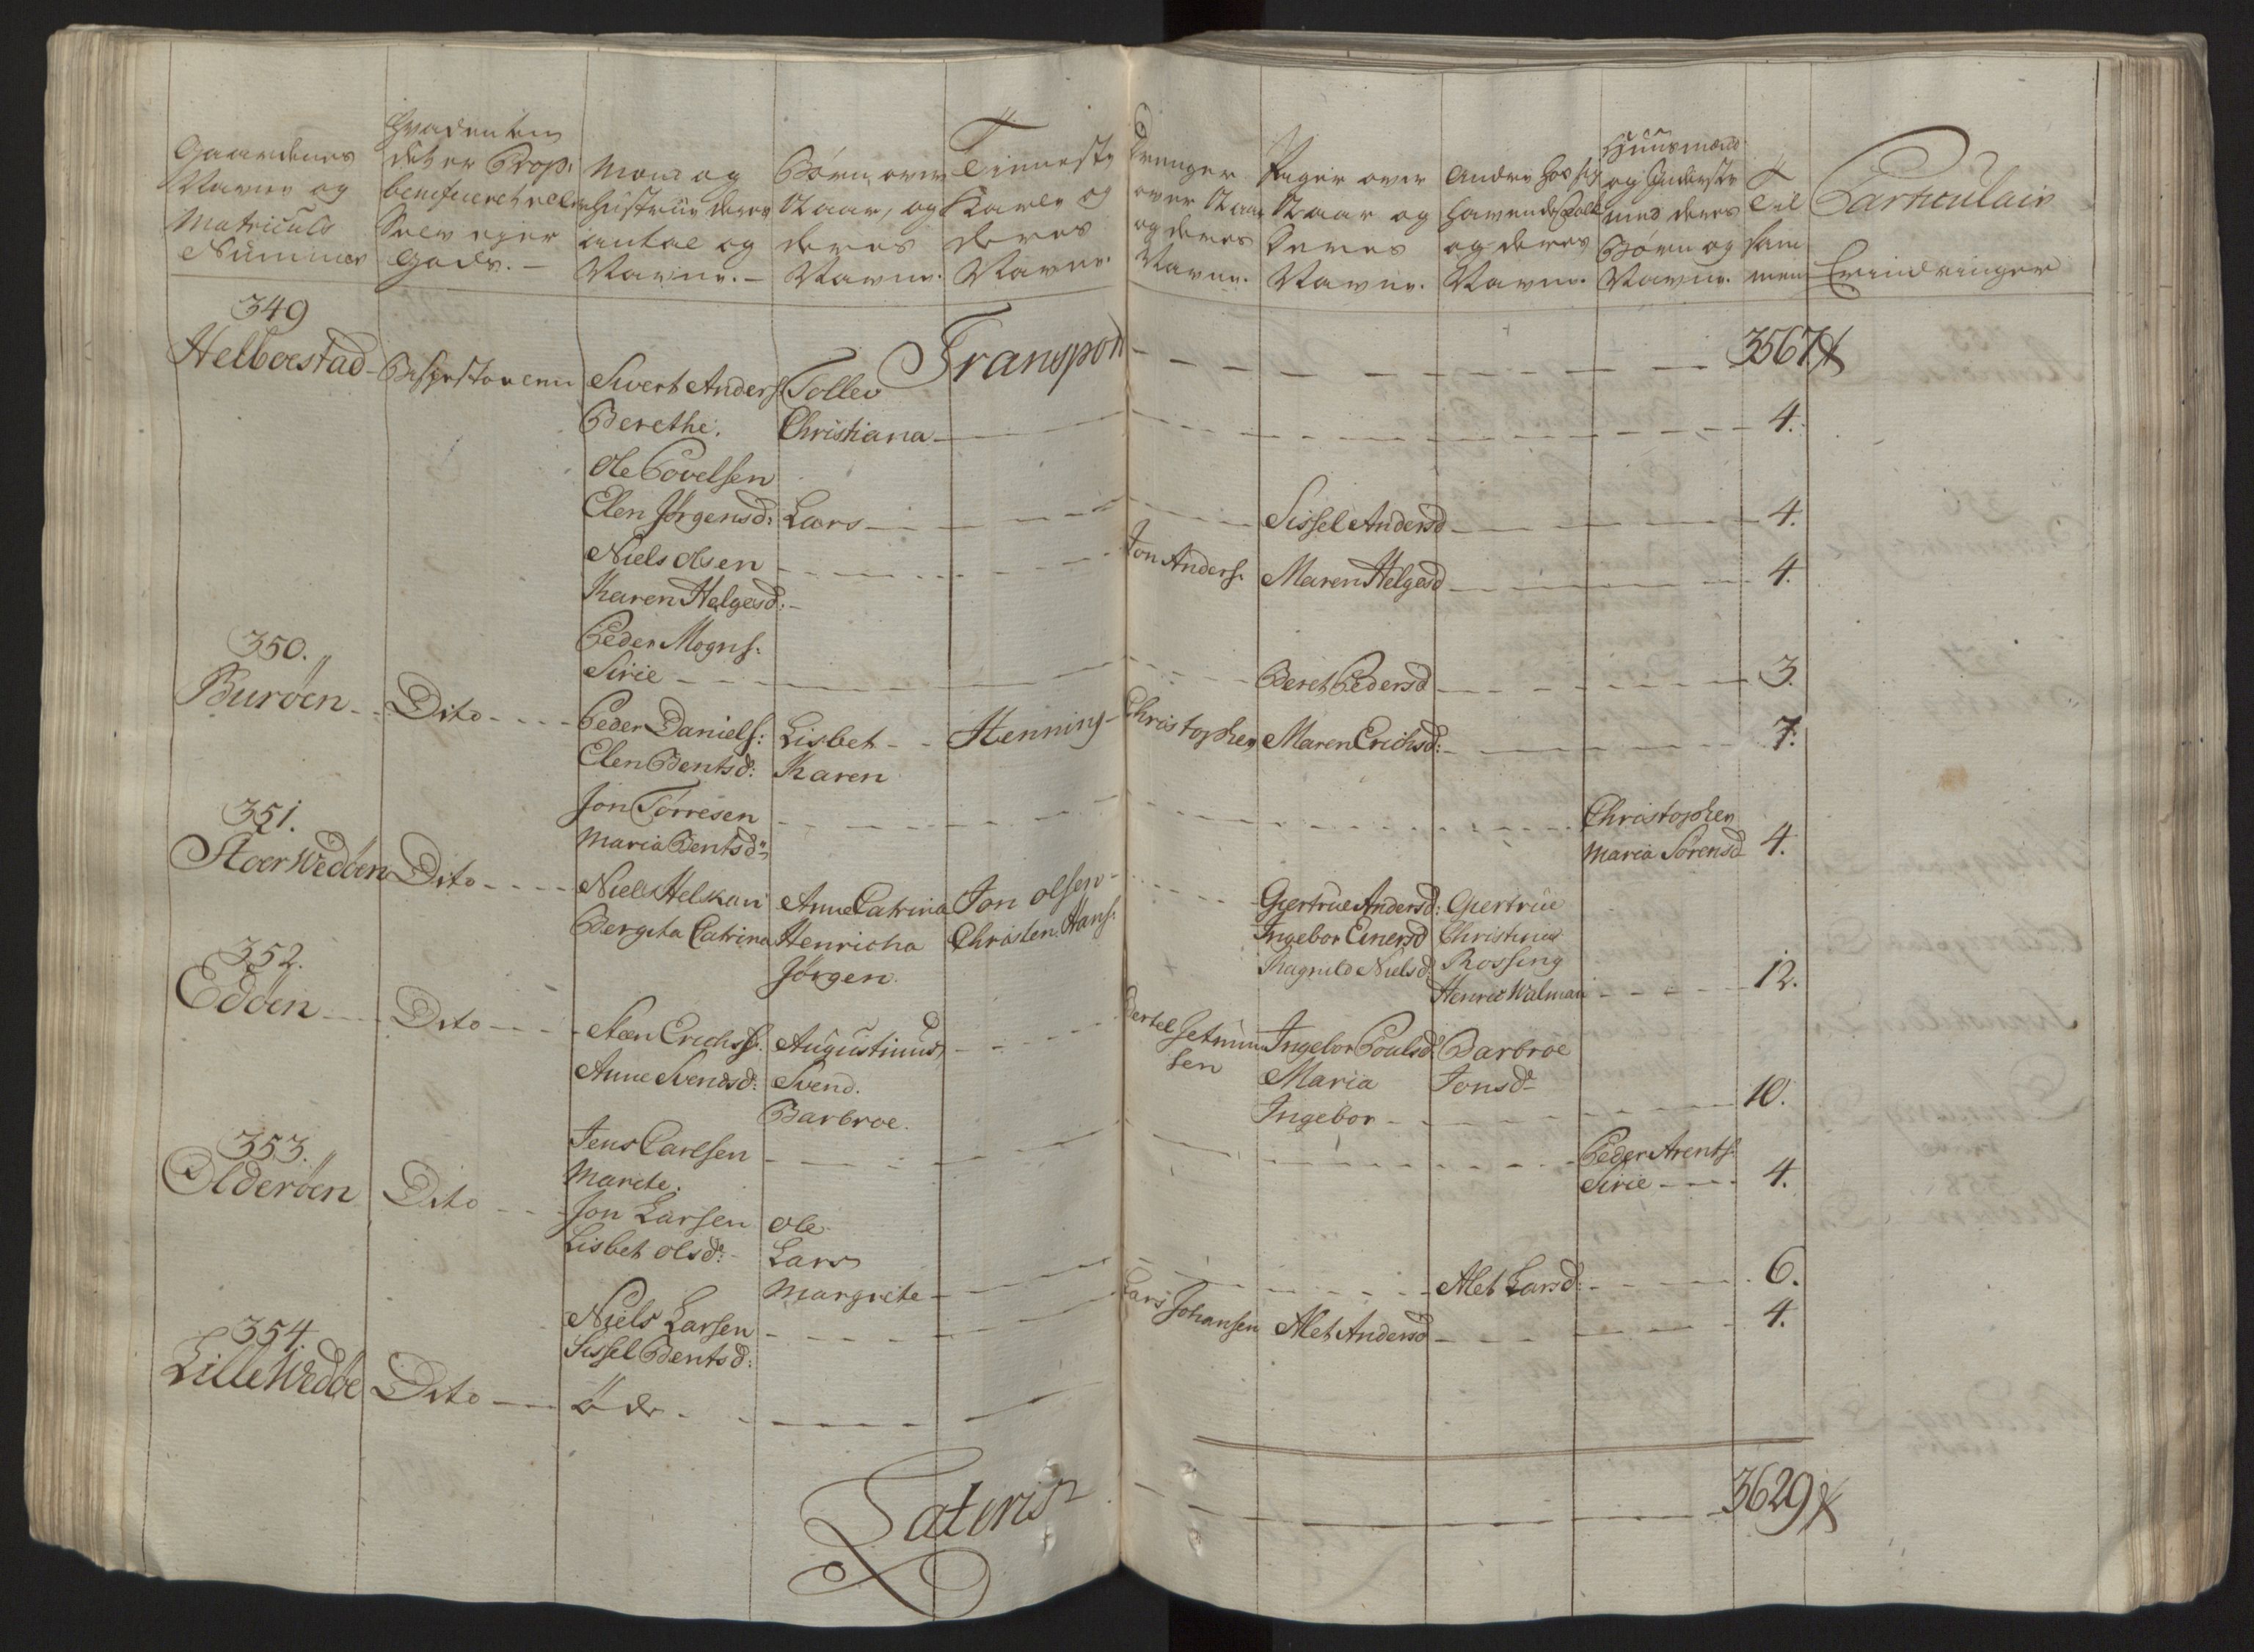 Gaardenes
Navne og
Matriculs
Nummer
Hvadenten
det er Prop:
beneficeret eller
Selv eyer
Gods. -
Mand og
Hustrue deres
antal og
Navne. -
Børn over
12 aar, og
deres
Navne.
Tienneste
Karle og
deres
Navne.
Drenger
over 12 aar
og deres
Navne.
Piger over
12 aar og
deres
Navne.
Andre hos sig
havende Folk
og deres
Navne.
Huusmænd
og Inderste
med deres
Børn og
Navne.
Til
sam
men
Particulair
Erindringer
Transport - - - 3567
349
Helboestad - Sivert Anders: Tollev
Berethe. Christiana - - - 4.
Ole Povelsen
Elen Jørgensd: Lars - - - Sissel Andersd - - - 4.
Niels Olsen - - - Jon Anders: Maren Helgesd - - - 4.
Karen Helgesd: -
350. Peder Mogns:
Sirie - - - Beret Pedersd - - - 3.
Burøen - - Dito - - - Peder Daniels: Lisbet - - Henning - Christopher Maren Erichsd: - - - 7.
Elen Bentsd: Karen
351. Jon Torresen - - - Christopher
Maria Bentsd: Maria Sørensd 4.
Stoer Wedøen Dito - - - Niels Helkan Anne Catrina Jon Olsen - - - Giertrue Andersd: Giertrue
Bergita Catrina Henricha Christen Hans: Ingebor Einersd Christina
Jørgen. Ragnild Nielsd: Rossing
Henric Walman - - - 12.
352.
Edøen - - Dito - - - Steen Erichs: Augustinus - - - Bertel Ingebor Poulsd: Barbroe
sen
Anne Svendsd: Svend. Maria Jonsd
Barbroe. Ingebor - - - 10.
353. Jens Carlsen - - - Peder Arents:
Marete. Sirie - - - 4.
Olderøen Dito - - - Jon Larsen Ole
Lisbet Olsd: - Lars
Margrete - - - Alet Larsd: - - - 6.
Niels Larsen - - - Lars Johansen Alet Andersd - - - 4.
Sissel Bentsd:
354.
Lille Wedøe Dito - - - Øde - - -
Lateris - - - 3629